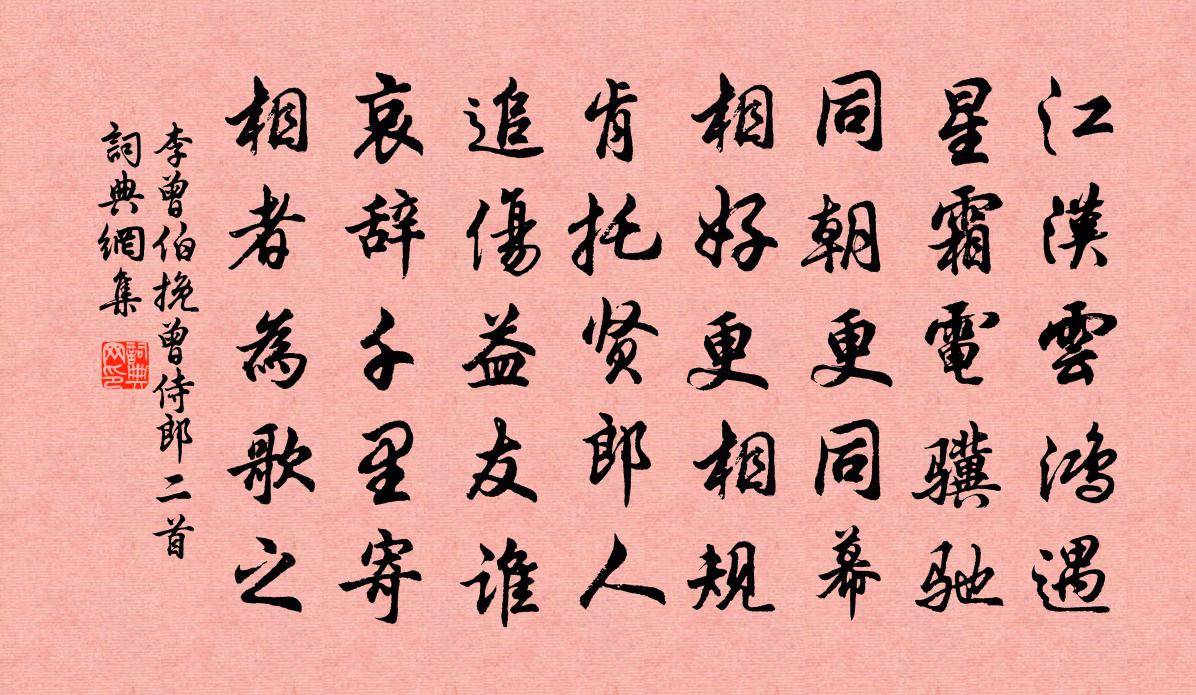 江漢雲鴻遇
星霜電驥馳
同朝更同幕
相好更相規
肯托贤郎人
追傷益友谁
哀辞千里寄
相者為歌之
李曾伯挽曾侍郎二首
詞典網集
詞典网印